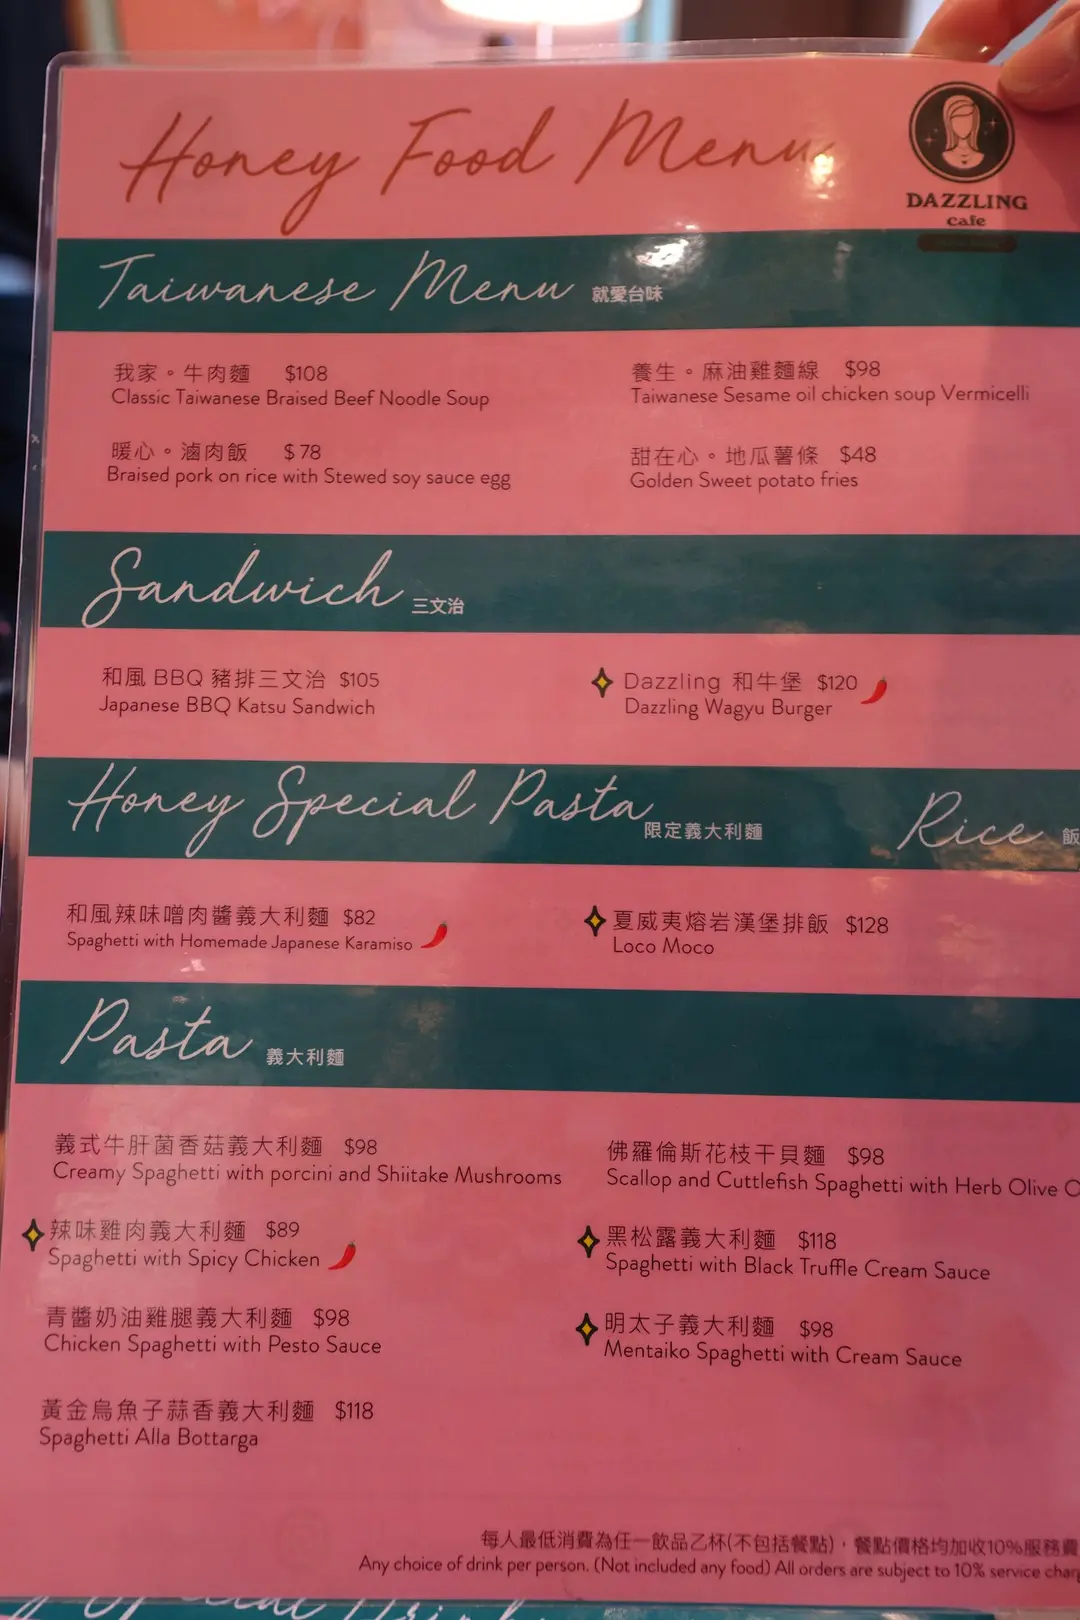 Honey Food Menu
DAZZLING
cafe
Taiwanese Menu 就愛台味
我家。牛肉麵 $108
Classic Taiwanese Braised Beef Noodle Soup
養生。麻油雞麵線 $98
Taiwanese Sesame oil chicken soup Vermicelli
暖心。滷肉飯 $78
Braised pork on rice with Stewed soy sauce egg
甜在心。地瓜薯條 $48
Golden Sweet potato fries
Sandwich 三文治
和風 BBQ 豬排三文治 $105
Japanese BBQ Katsu Sandwich
Dazzling 和牛堡 $120
Dazzling Wagyu Burger
Honey Special Pasta 限定義大利麵
Rice 飯
和風辣味噌肉醬義大利麵 $82
Spaghetti with Homemade Japanese Karamiso
夏威夷熔岩漢堡排飯 $128
Loco Moco
Pasta 義大利麵
義式牛肝菌香菇義大利麵 $98
Creamy Spaghetti with porcini and Shiitake Mushrooms
佛羅倫斯花枝干貝麵 $98
Scallop and Cuttlefish Spaghetti with Herb Olive
辣味雞肉義大利麵 $89
Spaghetti with Spicy Chicken
黑松露義大利麵 $118
Spaghetti with Black Truffle Cream Sauce
青醬奶油雞腿義大利麵 $98
Chicken Spaghetti with Pesto Sauce
明太子義大利麵 $98
Mentaiko Spaghetti with Cream Sauce
黃金烏魚子蒜香義大利麵 $118
Spaghetti Alla Bottarga
每人最低消費為任一飲品乙杯(不包括餐點)，餐點價格均加收10%服務費
Any choice of drink per person. (Not included any food) All orders are subject to 10% service